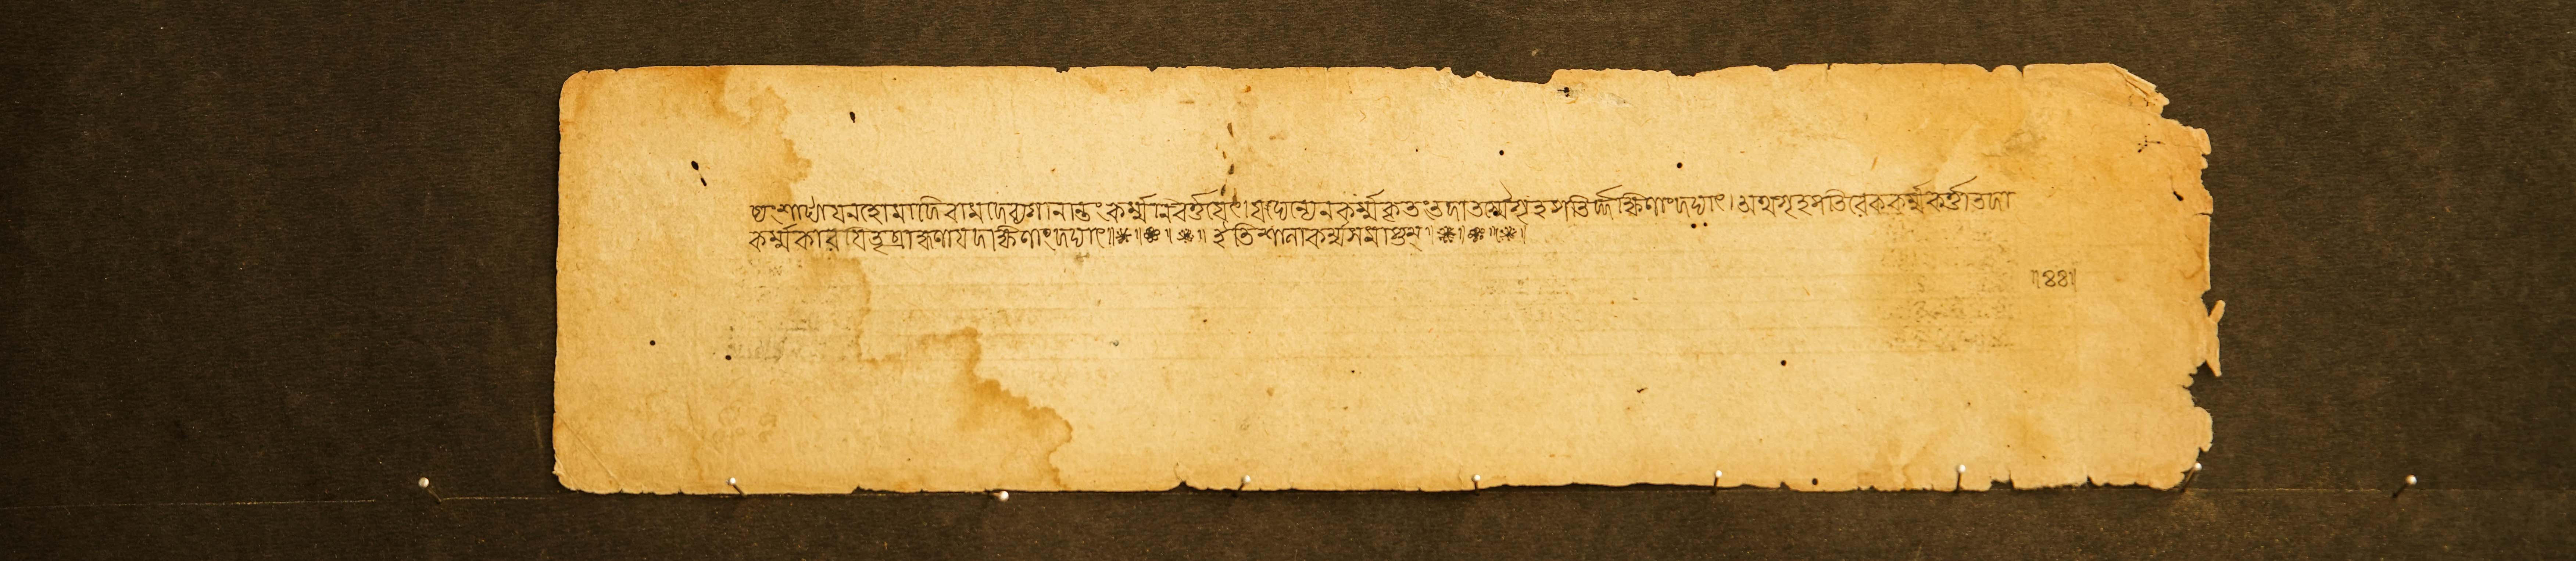 প্য শাট্যায়নহোমাদিবামদেব্যগানান্তং কর্ম্মনিবর্ত্তয়েৎ। যদ্যন্যেন কর্ম্মকৃতং তদা তস্মৈ গৃহপতির্দ্দক্ষিণাং দদ্যাৎ। অথ গৃহপতিরেক কর্ম্মকর্ত্তা তদা
কর্ম্মকারয়িতৃব্রাহ্মণায় দক্ষিণাং দদ্যাৎ॥ ॥ ॥ ॥ ইতি শালাকর্ম্মসমাপ্তম্॥ ॥ ॥ ॥
॥৪৪॥